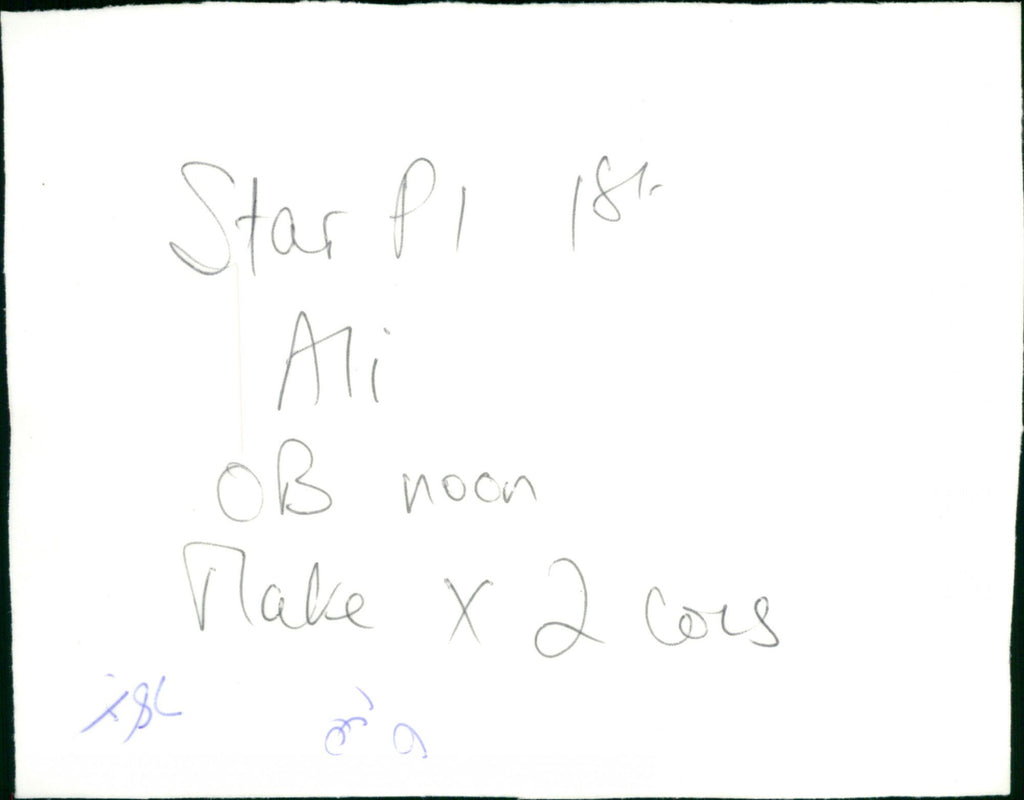 Star P1 1st
Ali
OB noon
Make X 2 cols